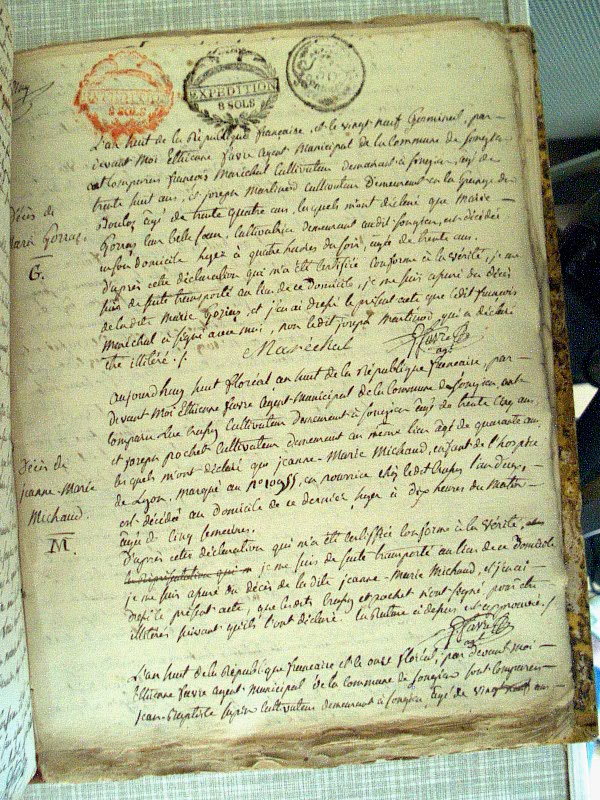 EXPEDITION
8 SOLS
EXPEDITION
8 SOLS
L'an huit de la République française, et le vingt neuf Germinal, par-
devant moi Ettienne favre agent Municipal de la Commune de Songieu
ont Comparus françois Maréchal Cultivateur demeurant à Songieu, agé de
trente huit ans, et joseph Martinod Cultivateur Demeurant en la Grange de
agé de trente quatre ans, lesquels m'ont déclaré que Marie
leur belle Soeur, Cultivatrice demeurant audit Songieu, est décédée
en son domicile hyer à quatre heures du soir, agée de trente ans.
D'après cette déclaration qui m'a été Certifiée Conforme à la vérité, je me
suis de suite transporté au lieu de ce Domicile, je me suis assuré du décès
de ladite Marie et j'en ai dressé le présent acte que ledit françois
Maréchal a signé avec moi, non ledit joseph Martinod, qui a déclaré
être illitéré ./.
Maréchal
favre
agt
Décès de
Marie
G.
aujourdhuy huit floréal an huit de la République française, par-
devant Moi Ettienne favre agent Municipal de la Commune de Songieu, ont
Comparu Cultivateur demeurant à Songieu agé de trente Cinq ans,
et joseph pochet Cultivateur demeurant au même lieu agé de quarante ans
lesquels m'ont déclaré que jeanne-Marie Michaud, enfant de l'hospice
de Lyon, marqué au n° 10955, en nourrice chez ledit l'un d'eux,
est décédée au Domicile de ce dernier hyer à dix heures du Matin
agée de Cinq Semaines.
D'après cette déclaration qui m'a été Certifiée conforme à la vérité,
je me suis de suite transporté au lieu de ce Domicile
je me suis assuré du décès de la dite jeanne-Marie Michaud, et j'en ai
dressé le présent acte, que lesdits et pochet n'ont signé pour être
illitérés suivant qu'ils l'ont déclaré. la Rature ci dessus est approuvée ./.
favre
agt
Décès de
jeanne-Marie
Michaud.
M.
L'an huit de la République française et le onze floréal, par devant moi
Ettienne favre agent Municipal de la Commune de Songieu sont Comparus
Jean-Baptiste Cultivateur demeurant à Songieu, agé de vingt neuf ans